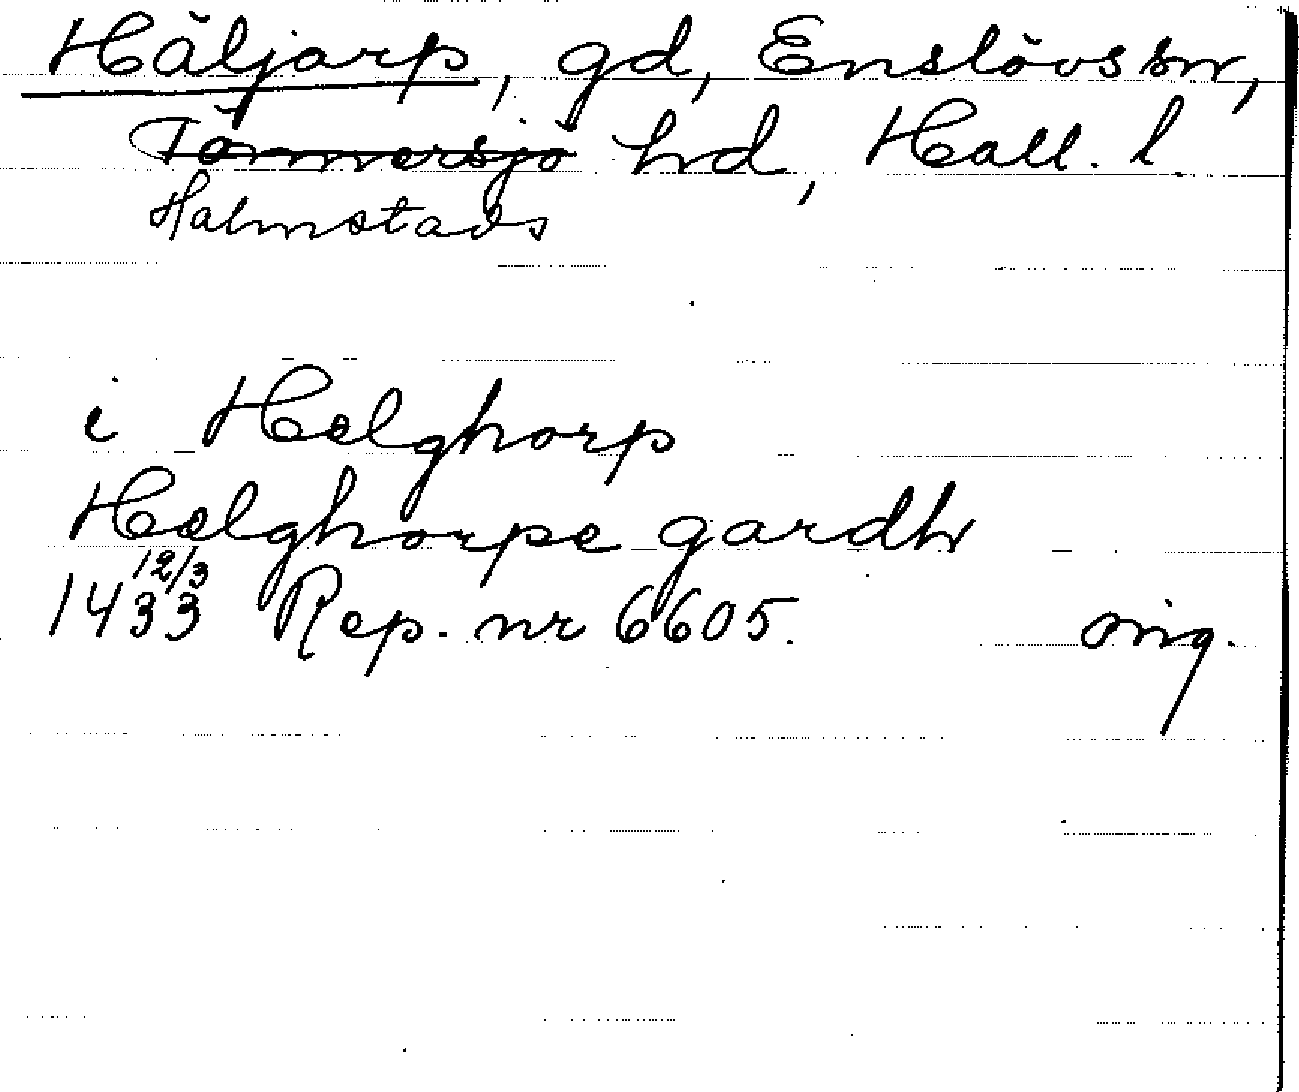 Häljarp, gd, Enslövs sn,
Tönnersjö hd, Hall. l
Halmstads
i Hælghorp
Hælghorpe gardh
1433 12/3 Rep. nr 6605. orig.